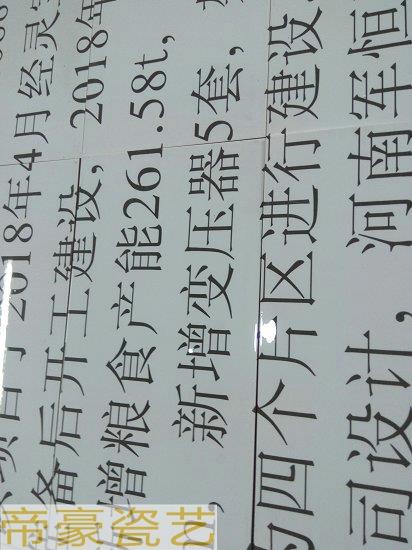 项目于2018年4月经灵
备后开工建设，2018年
增粮食产能261.58t，
新增变压器5套，
四个片区进行建设
司设计，河南军恒
帝豪瓷艺